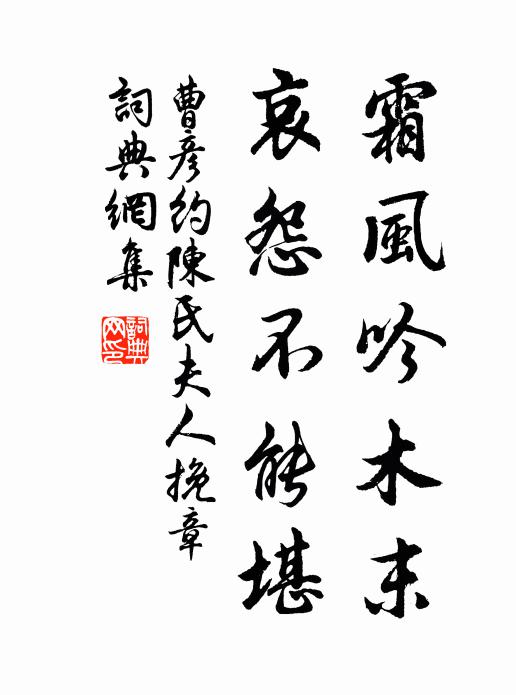 霜風吟木末
哀怨不能堪
曹彦約陳氏夫人挽章
詞典網集
詞典网印